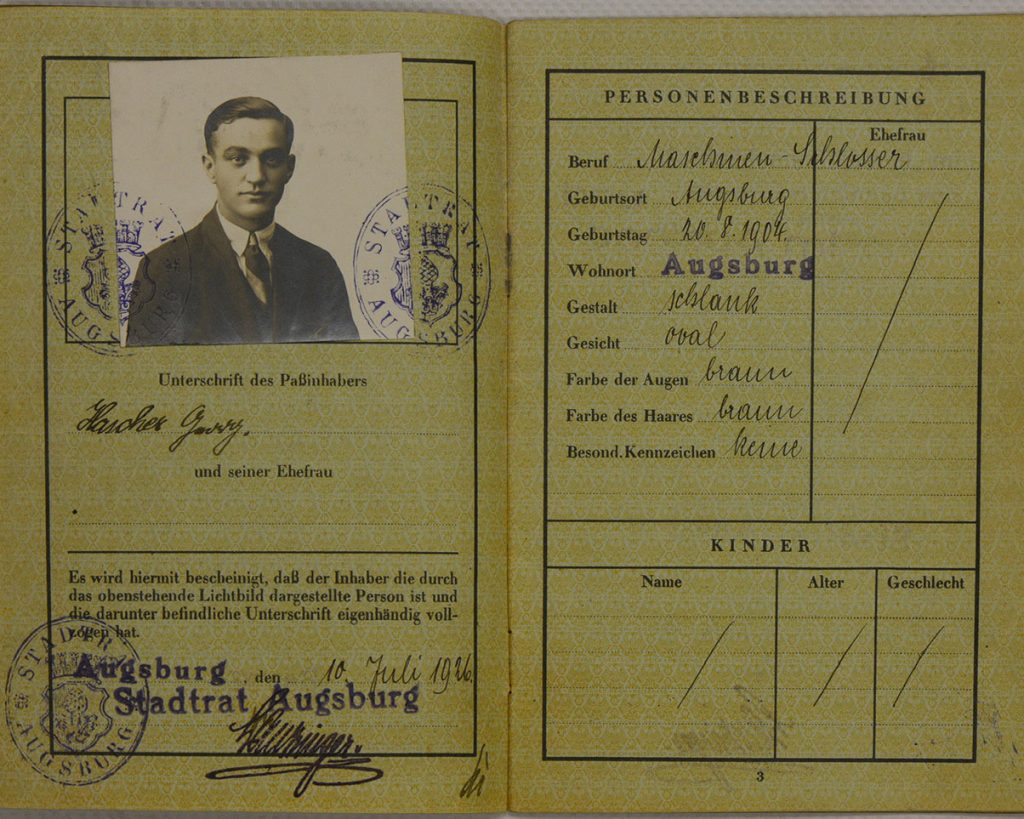 STADTRAT AUGSBURG
STADTRAT AUGSBURG
Unterschrift des Paßinhabers
Georg.
und seiner Ehefrau
Es wird hiermit bescheinigt, daß der Inhaber die durch
das obenstehende Lichtbild dargestellte Person ist und
die darunter befindliche Unterschrift eigenhändig voll-
zogen hat.
Augsburg, den 10 Juli 1926.
Stadtrat Augsburg
STADTRAT AUGSBURG
PERSONENBESCHREIBUNG
Ehefrau
Beruf Maschinen-Schlosser
Geburtsort Augsburg
Geburtstag 20. 8. 1904.
Wohnort Augsburg
Gestalt schlank
Gesicht oval
Farbe der Augen braun
Farbe des Haares braun
Besond. Kennzeichen keine
KINDER
Name Alter Geschlecht
3